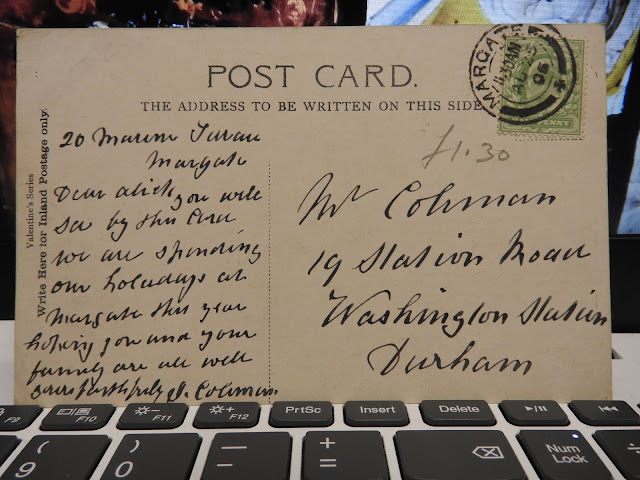 POST CARD.
THE ADDRESS TO BE WRITTEN ON THIS SIDE
Valentine's Series
Write Here for Inland Postage only.
MARGATE
11 30AM
AU
05
PENNY
£1.30
20 Marine Terrace
Margate
Dear Alick you will
see by this Card
we are spending
our holadays at
Margate this year
hoping you and your
family are all well
yours faithfully J. Cohman.
Mr Cohman
19 Station Road
Washington Station
Durham
F9
F10
F11
F12
PrtSc
Insert
Delete
( 9
) 0
+ =
Num Lock